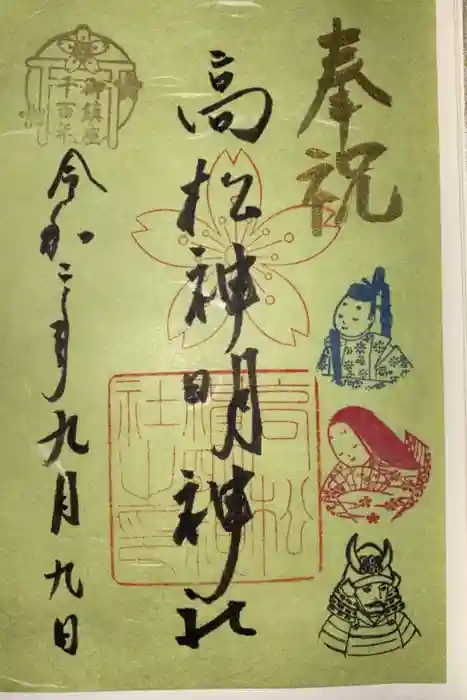 奉祝
高松神明神社
高松
社之印
御鎮座
千百年
令和二年九月九日